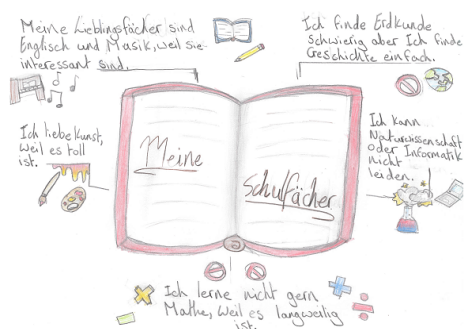 Meine Lieblingsfächer sind
Englisch und Musik, weil sie
interessant sind.
Ich finde Erdkunde
schwierig aber Ich finde
Geschichte einfach.
Ich liebe Kunst,
weil es toll
ist.
Meine
Schulfächer
Ich kann
Naturwissenschaft
oder Informatik
nicht
leiden.
Ich lerne nicht gern
Mathe, weil es langweilig
ist.